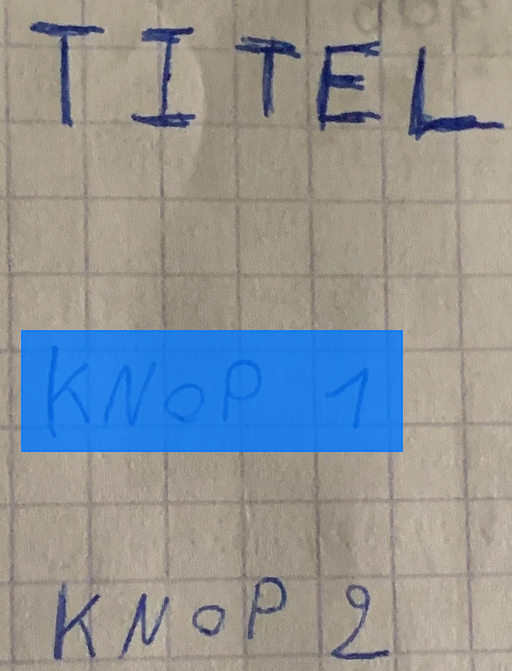 TITEL
KNOP 1
KNOP 2